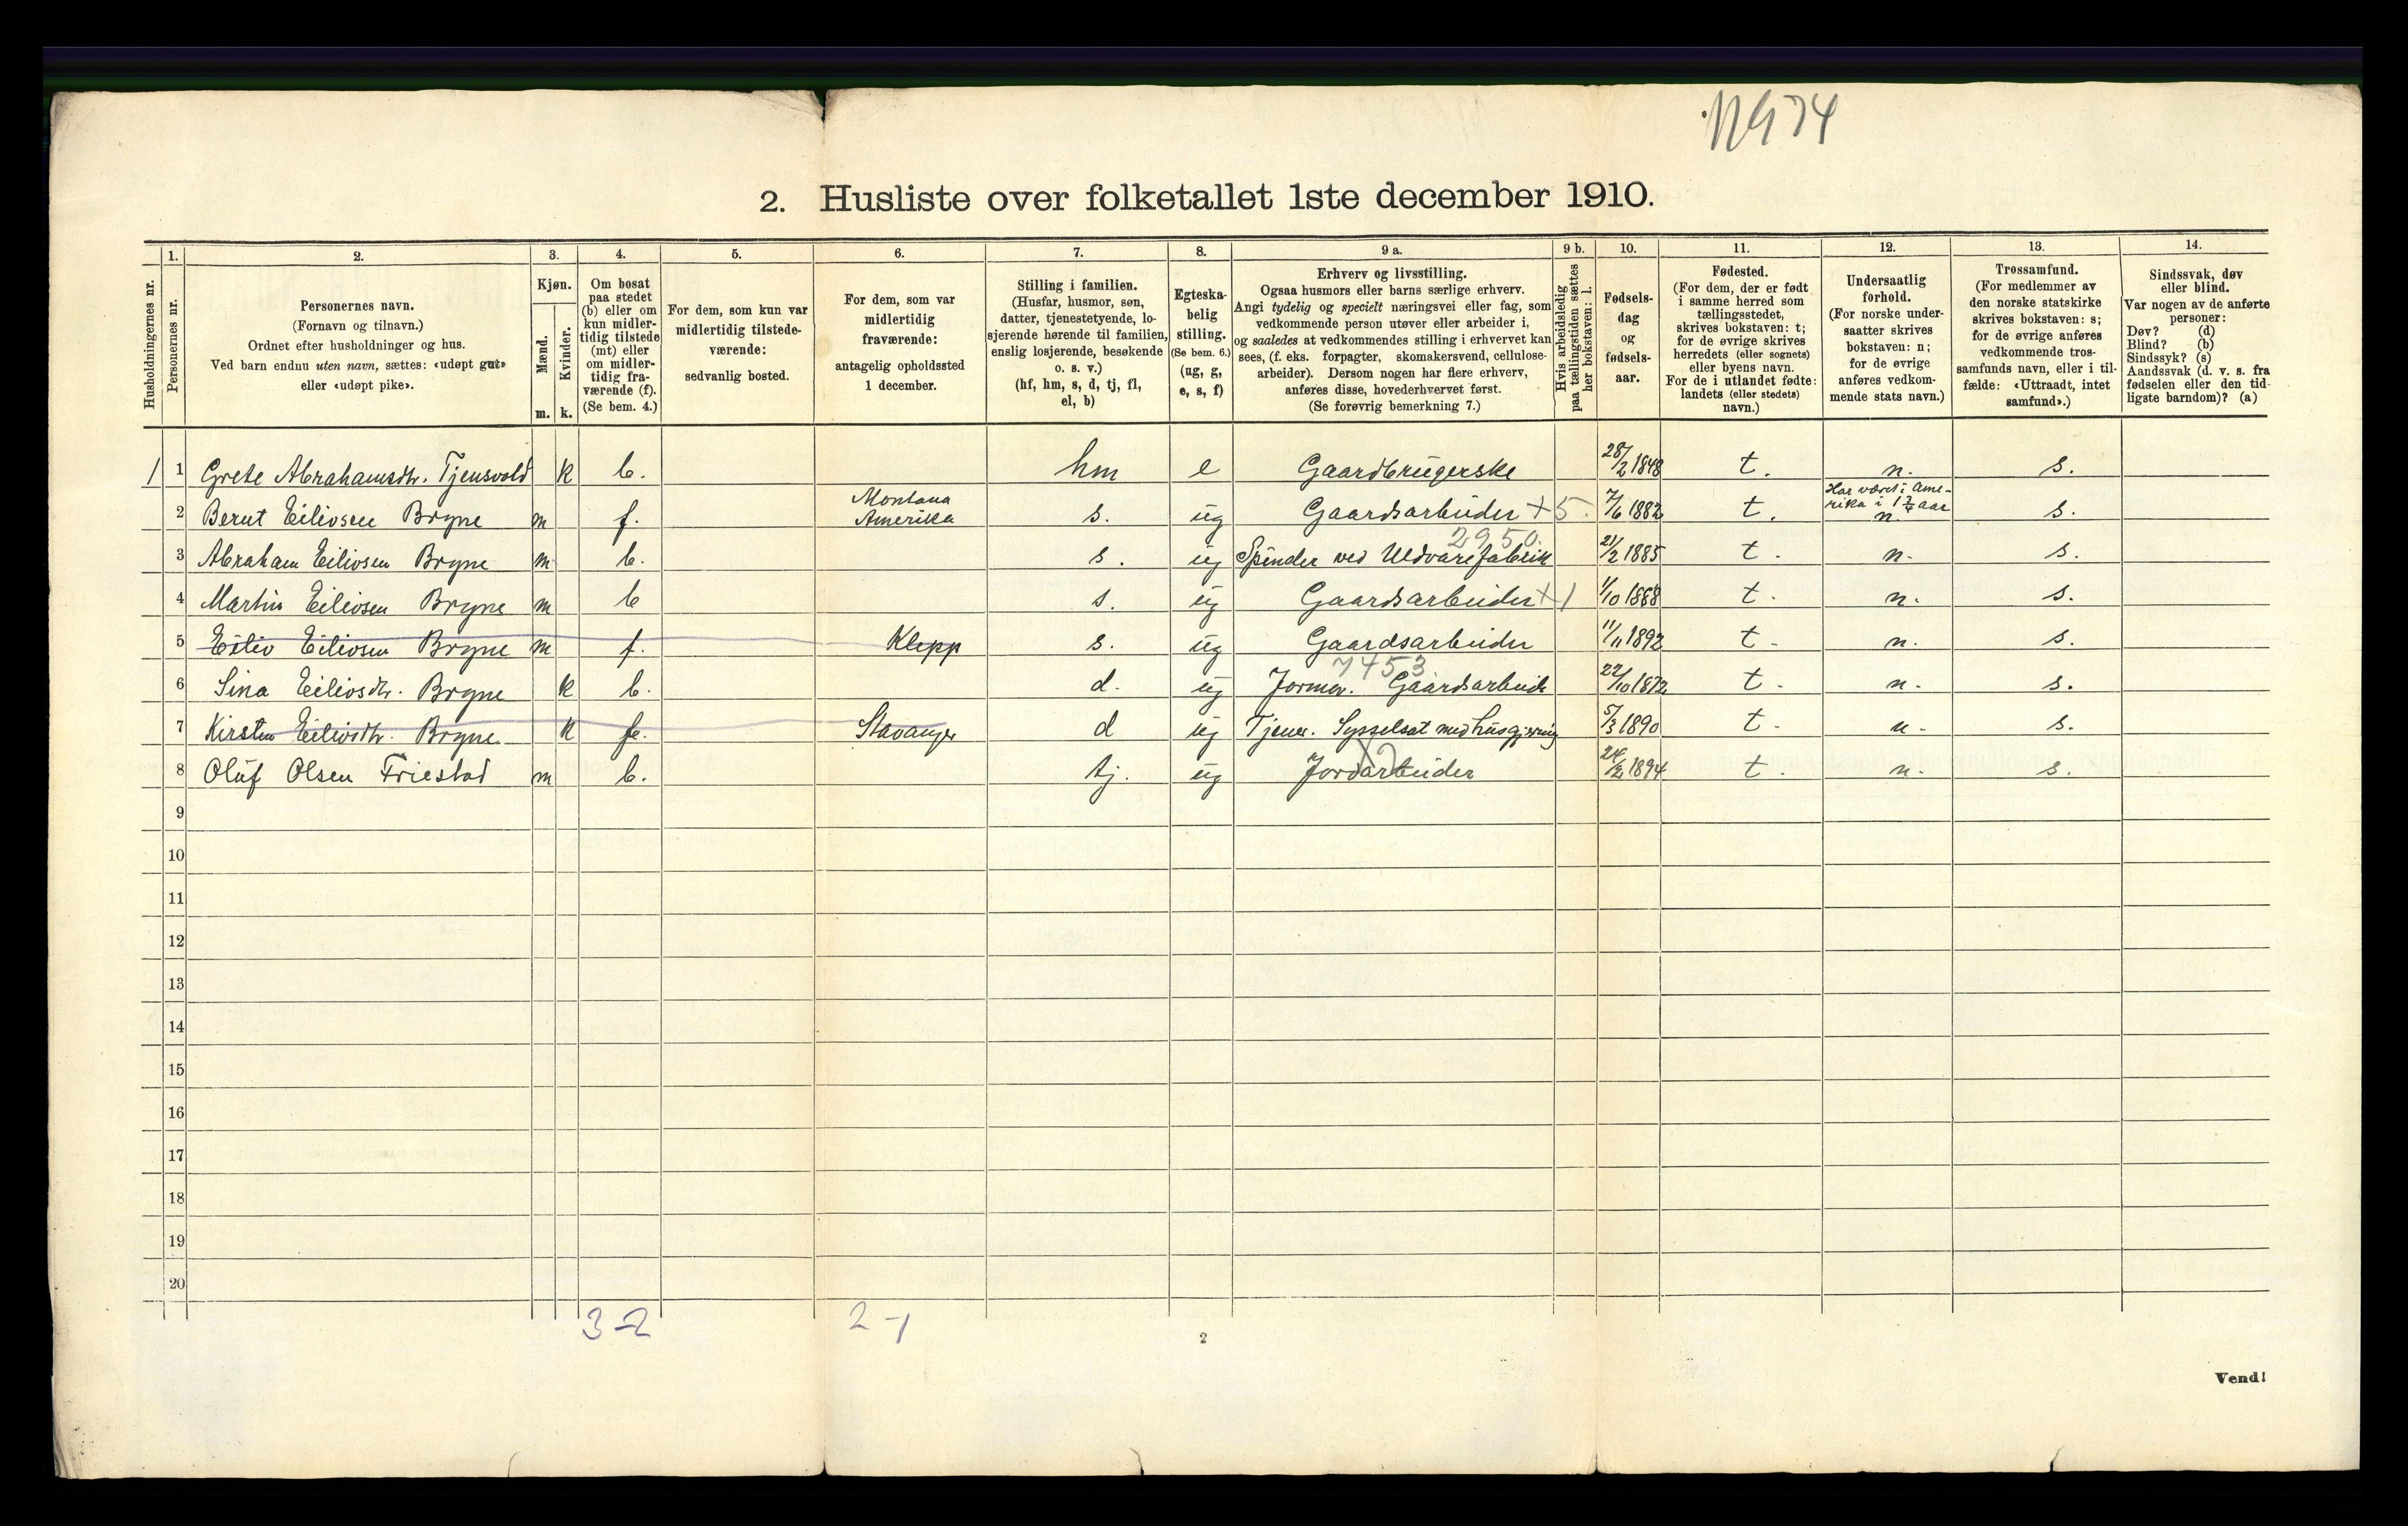 N 9 74
2. Husliste over folketallet 1ste december 1910.
Husholdningernes nr.
1.
Personernes nr.
2.
Personernes navn.
(Fornavn og tilnavn.)
Ordnet efter husholdninger og hus.
Ved barn endnu uten navn, sættes: «udøpt gut»
eller «udøpt pike».
3.
Kjøn.
Mænd.
Kvinder.
m. k.
4.
Om bosat
paa stedet
(b) eller om
kun midler-
tidig tilstede
(mt) eller
om midler-
tidig fra-
værende (f).
(Se bem. 4.)
5.
For dem, som kun var
midlertidig tilstede-
værende:
sedvanlig bosted.
6.
For dem, som var
midlertidig
fraværende:
antagelig opholdssted
1 december.
7.
Stilling i familien.
(Husfar, husmor, søn,
datter, tjenestetyende, lo-
sjerende hørende til familien,
enslig losjerende, besøkende
o. s. v.)
(hf, hm, s, d, tj, fl,
el, b)
8.
Egteska-
belig
stilling.
(Se bem. 6.)
(ug, g,
e, s, f)
9 a.
Erhverv og livsstilling.
Ogsaa husmors eller barns særlige erhverv.
Angi tydelig og specielt næringsvei eller fag, som
vedkommende person utøver eller arbeider i,
og saaledes at vedkommendes stilling i erhvervet kan
sees, (f. eks. forpagter, skomakersvend, cellulose-
arbeider). Dersom nogen har flere erhverv,
anføres disse, hovederhvervet først.
(Se forøvrig bemerkning 7.)
9 b.
Hvis arbeidsledig
paa tællingstiden sættes
her bokstaven: l.
10.
Fødsels-
dag
og
fødsels-
aar.
11.
Fødested.
(For dem, der er født
i samme herred som
tællingsstedet,
skrives bokstaven: t;
for de øvrige skrives
herredets (eller sognets)
eller byens navn.
For de i utlandet fødte:
landets (eller stedets)
navn.)
12.
Undersaatlig
forhold.
(For norske under-
saatter skrives
bokstaven: n;
for de øvrige
anføres vedkom-
mende stats navn.)
13.
Trossamfund.
(For medlemmer av
den norske statskirke
skrives bokstaven: s;
for de øvrige anføres
vedkommende tros-
samfunds navn, eller i til-
fælde: «Uttraadt, intet
samfund».)
14.
Sindssvak, døv
eller blind.
Var nogen av de anførte
personer:
Døv? (d)
Blind? (b)
Sindssyk? (s)
Aandssvak (d. v. s. fra
fødselen eller den tid-
ligste barndom)? (a)
1 1 Grete Abrahamsdtr. Tjensvold k b. hm e Gaardbrugerske 28/2 1848 t. n. s.
2 Berut Eilivsen Bryne m f. Montana Amerika s. ug Gaardsarbeider + 5. 7/6 1882 t. Har været i Ame-
rika i 1 3/4 aar
n. s.
2950.
3 Abraham Eilivsen Bryne m b. s. ug Spinder ved Uldvarefabrik 21/2 1885 t. n. s.
4 Martin Eilivsen Bryne m b s. ug Gaardsarbeider + 1 1/10 1888 t. n. s.
5 Eiliv Eilivsen Bryne m f. Klepp s. ug Gaardsarbeider 11/11 1892 t. n. s.
7453
6 Sina Eilivsdtr. Bryne k b. d. ug Jormor. Gaardsarbeid 22/10 1872 t. n. s.
7 Kirsten Eilivsdtr. Bryne k f. Stavanger d ug Tjener. Sysselsat med husgjerning 5/3 1890 t. n. s.
8 Oluf Olsen Friestad m b. tj. ug Jordarbeider X2 24/2 1894 t. n. s.
9
10
11
12
13
14
15
16
17
18
19
20
3-2 2-1
2
Vend!